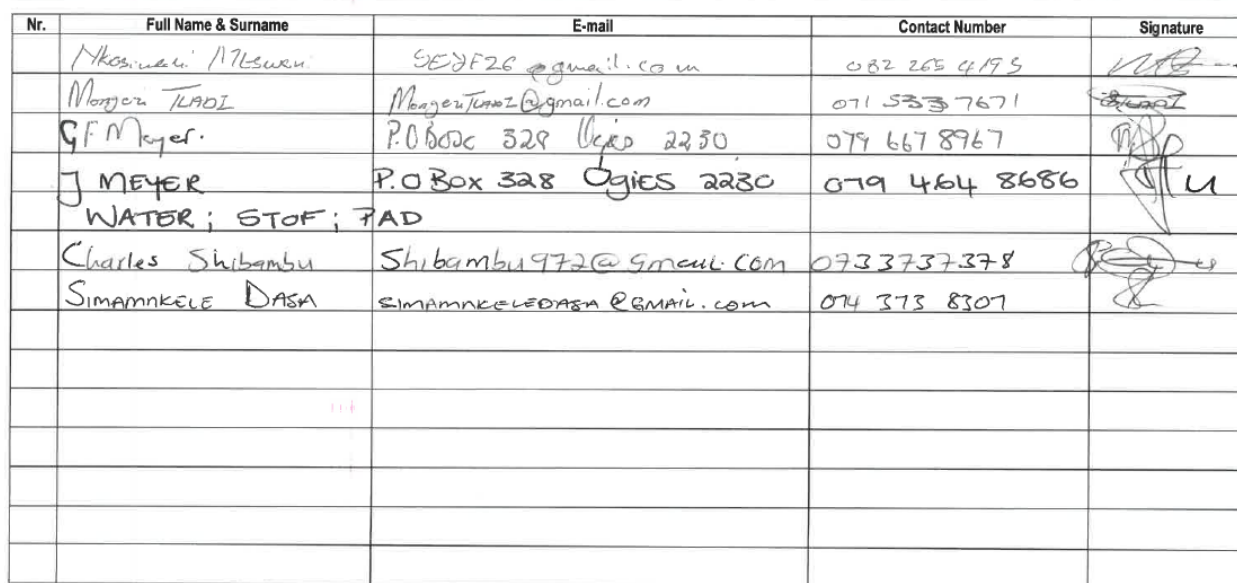 Nr. Full Name & Surname E-mail Contact Number Signature
@gmail.com 082 265 4195
TLADI MongeziTLADI@gmail.com 071 533 7671
GF Meyer. P.O Box 328 Ogies 2230 079 667 8967
J MEYER P.O Box 328 Ogies 2230 079 464 8686
WATER; STOF; PAD
Charles Shibambu Shibambu972@gmail.com 0733737378
SIMAMNKELE DASA SIMAMNKELEDASA@GMAIL.com 074 373 8307